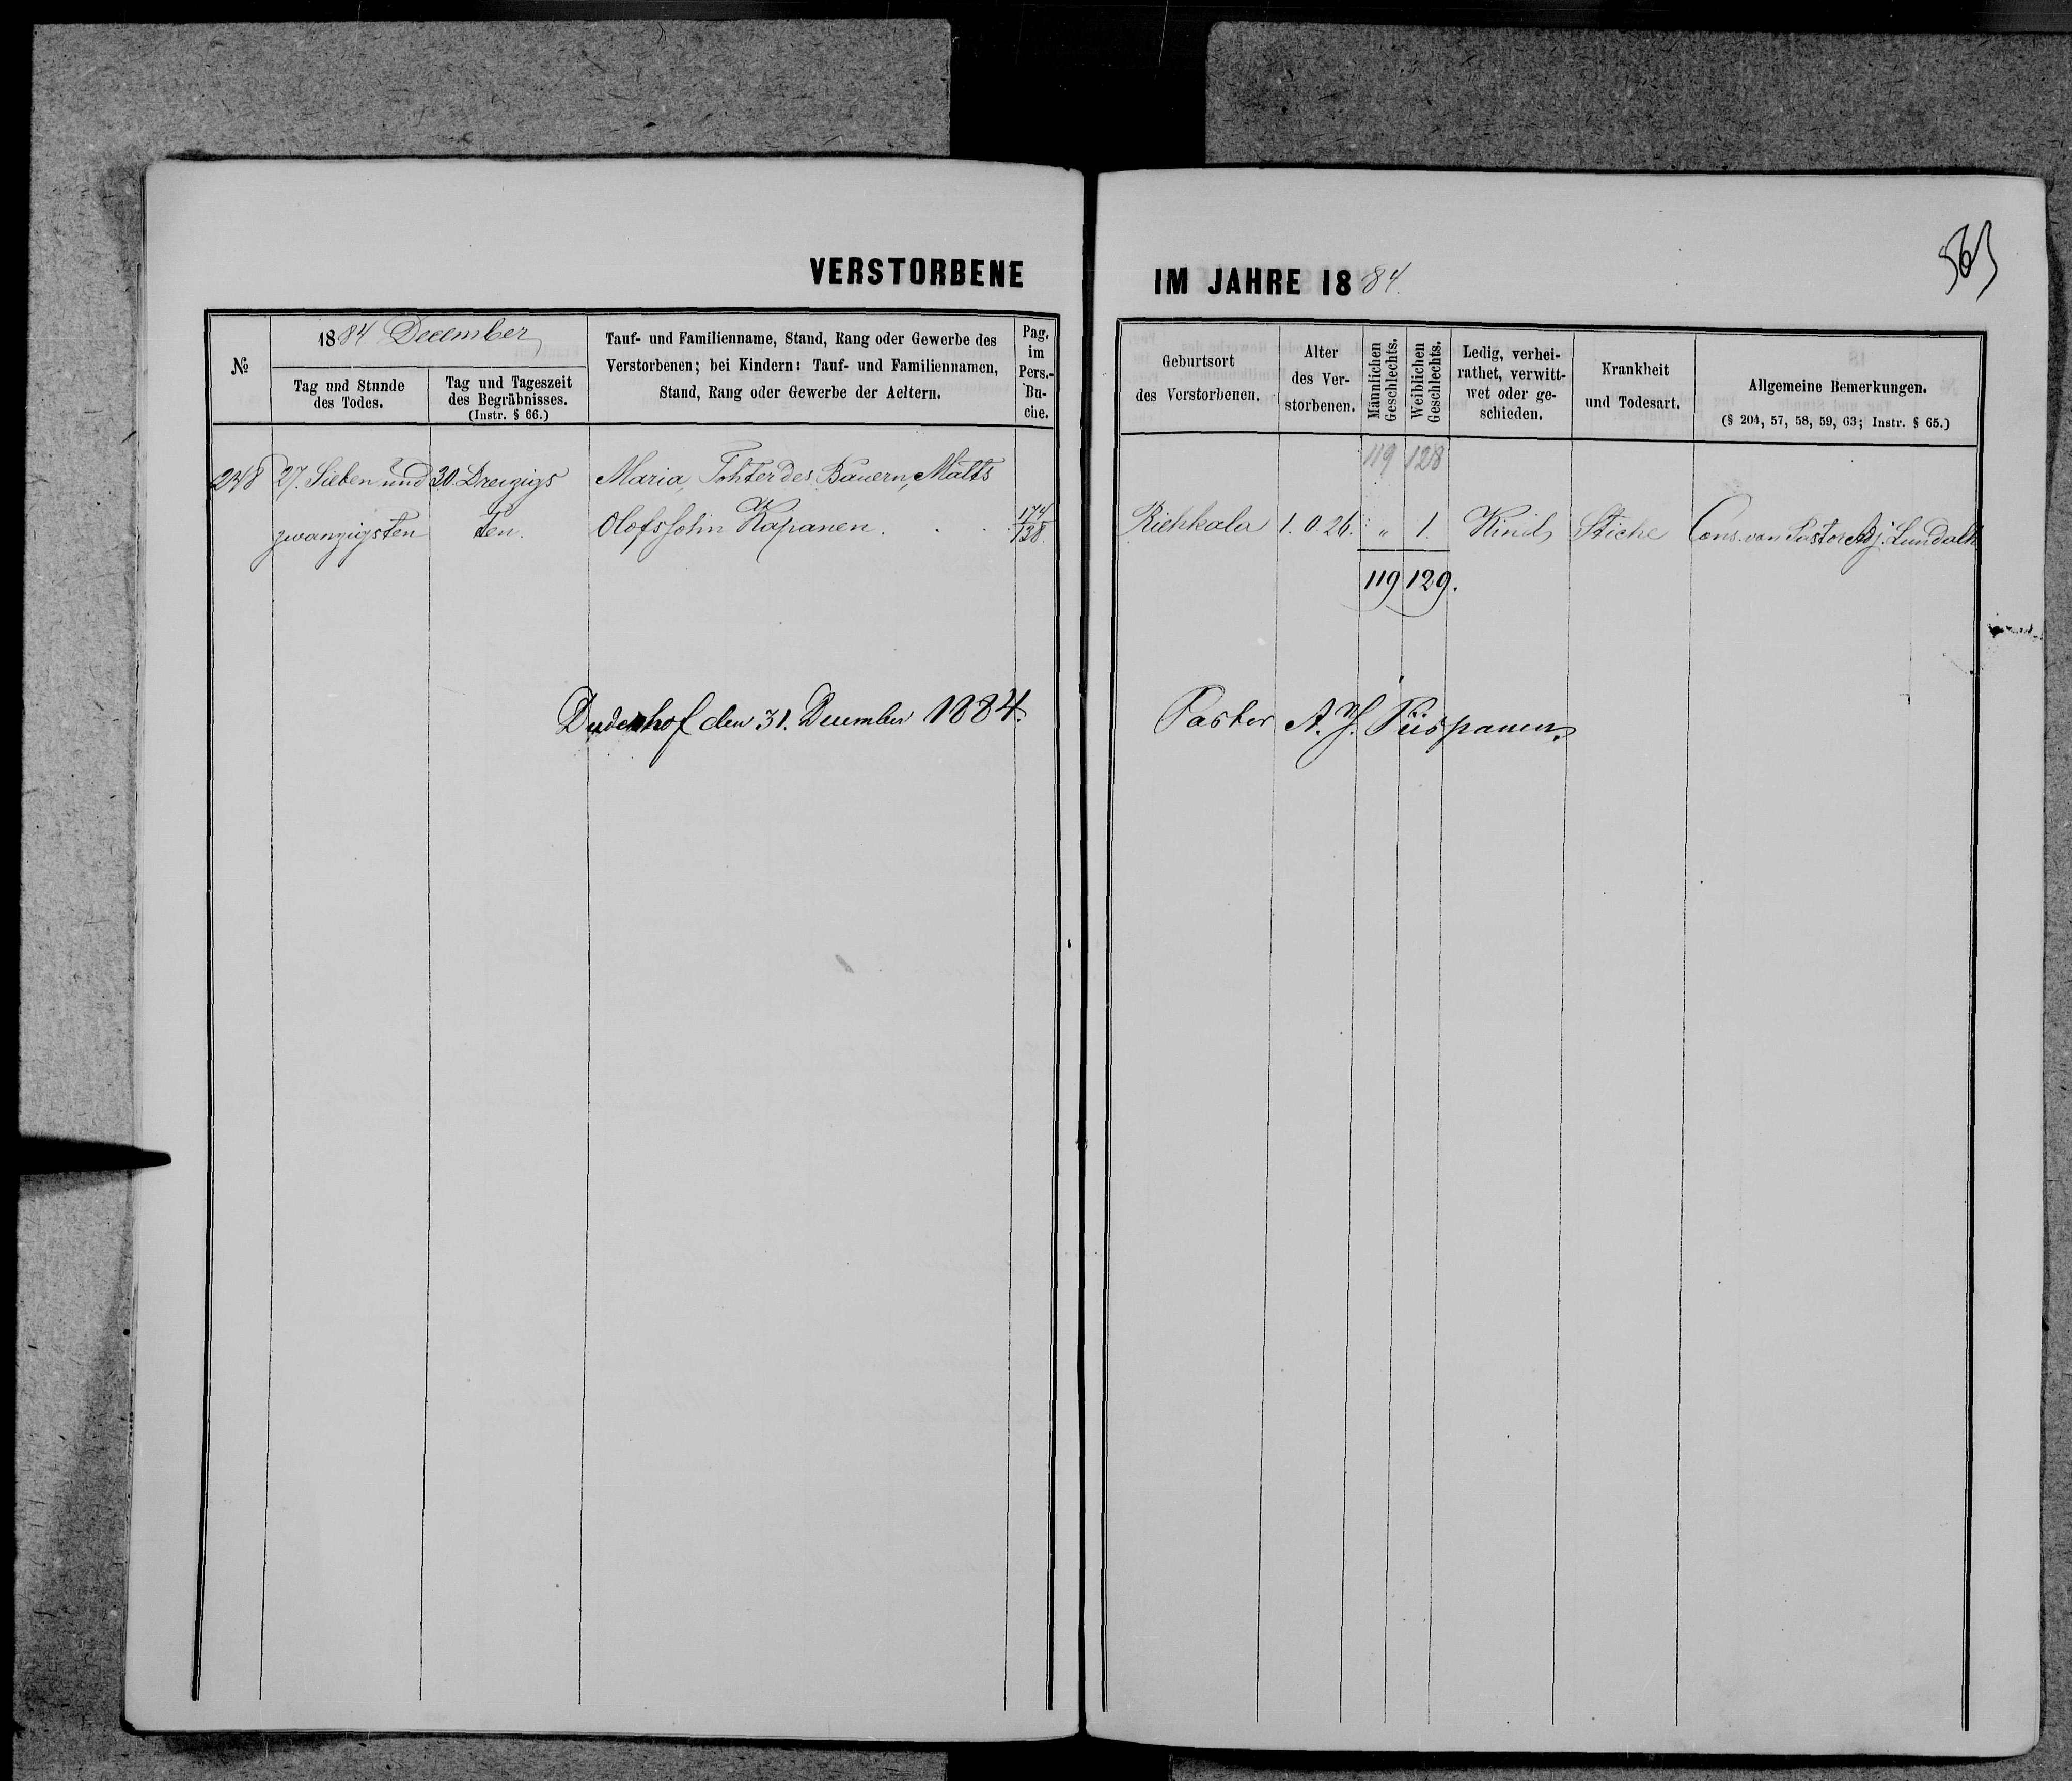 VERSTORBENE
IM JAHRE 1884.
565
№
1884 December
Tag und Stunde
des Todes.
Tag und Tageszeit
des Begräbnisses.
(Instr. § 66.)
Tauf- und Familienname, Stand, Rang oder Gewerbe des
Verstorbenen; bei Kindern: Tauf- und Familiennamen,
Stand, Rang oder Gewerbe der Aeltern.
Pag.
im
Pers.-
Bu-
che.
Geburtsort
des Verstorbenen.
Alter
des Ver-
storbenen.
Männlichen
Geschlechts.
Weiblichen
Geschlechts.
Ledig, verhei-
rathet, verwitt-
wet oder ge-
schieden.
Krankheit
und Todesart.
Allgemeine Bemerkungen.
(§ 204, 57, 58, 59, 63; Instr. § 65.)
119 128
248 27. Sieben und 30. Dreizigs Maria, Tohter des Bauern, Matts
zwanzigsten ten. Olofssohn Kapanen. 174/138. Riehkala 1. 0 26. " 1. Kind Stiche Cons. von Pastor Adj. Lundalh
119 129.
Dudenhof den 31. December 1884. Pastor A. J. Piispanen.